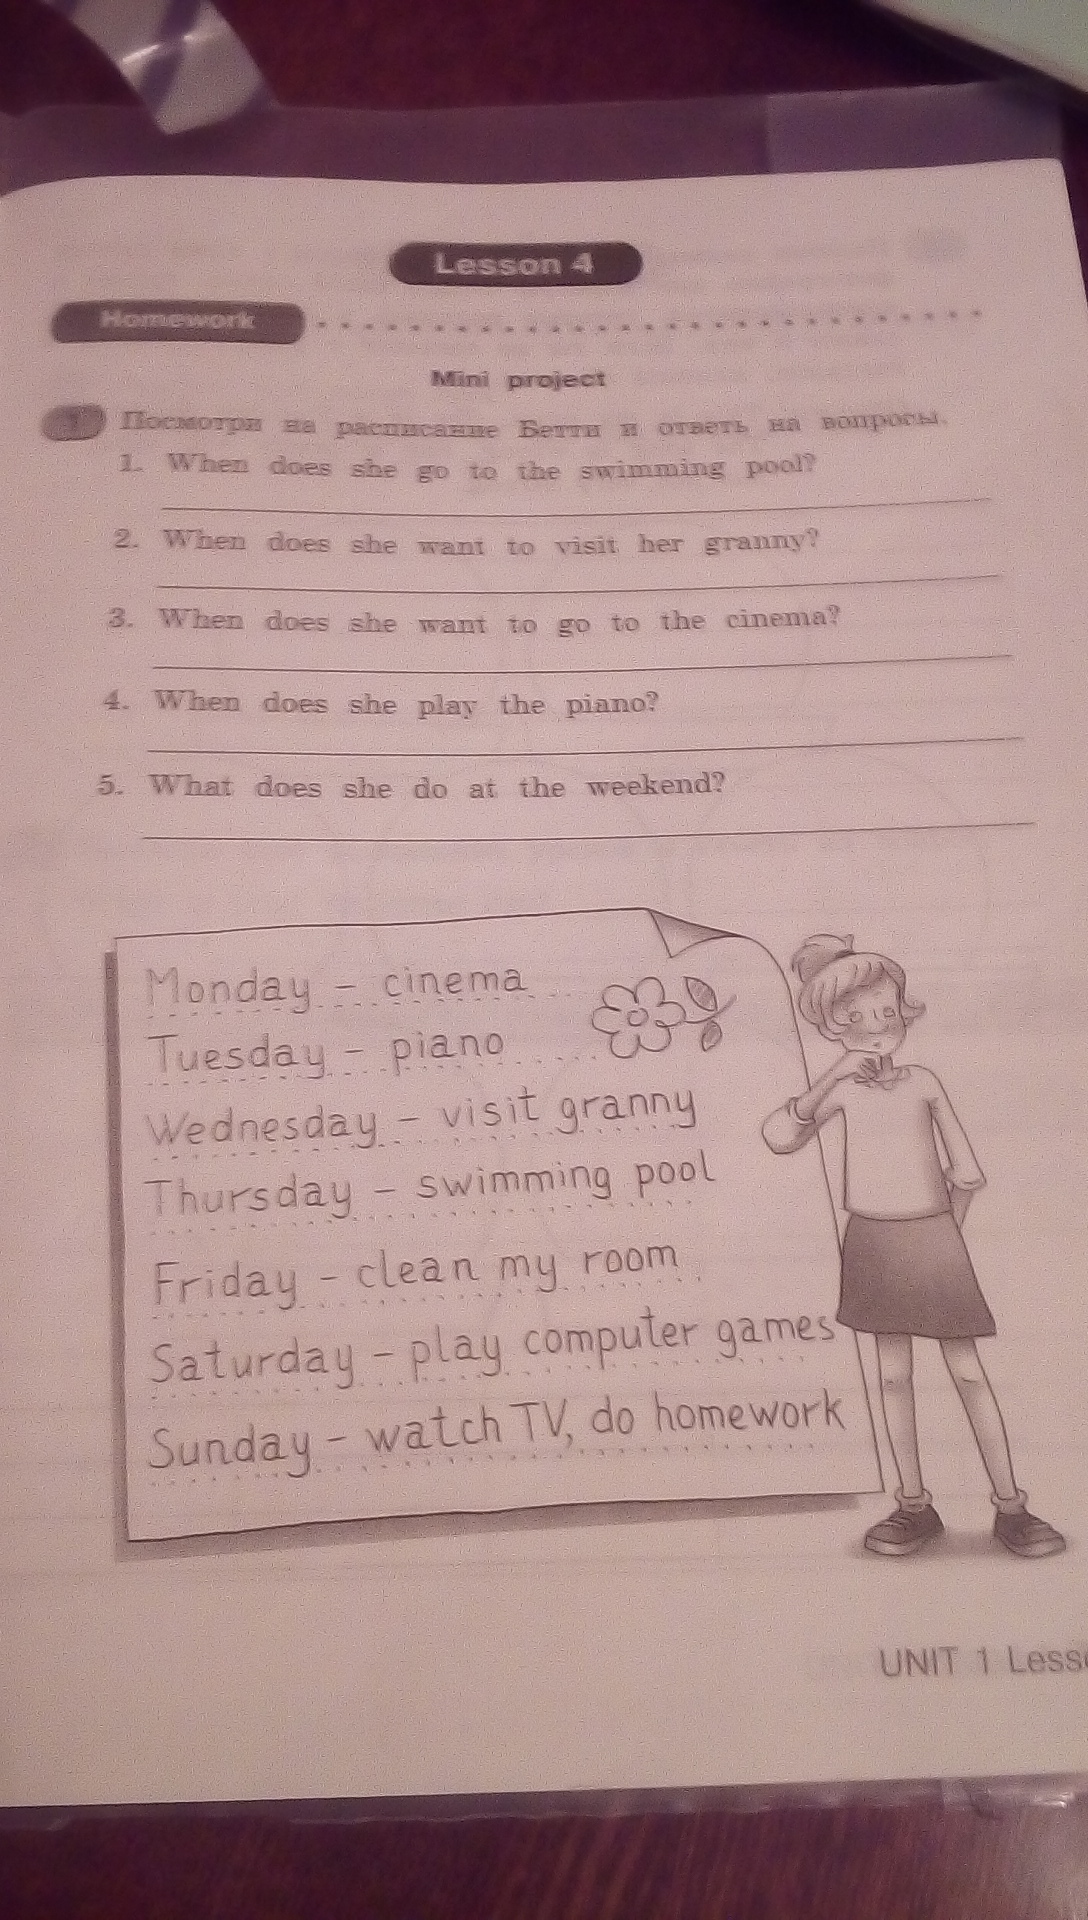 Lesson 4
Homework
Mini project
1 Посмотри на расписание Бетти и ответь на вопросы.
1. When does she go to the swimming pool?
2. When does she want to visit her granny?
3. When does she want to go to the cinema?
4. When does she play the piano?
5. What does she do at the weekend?
Monday - cinema
Tuesday - piano
Wednesday - visit granny
Thursday - swimming pool
Friday - clean my room
Saturday - play computer games
Sunday - watch TV, do homework
UNIT 1 Less